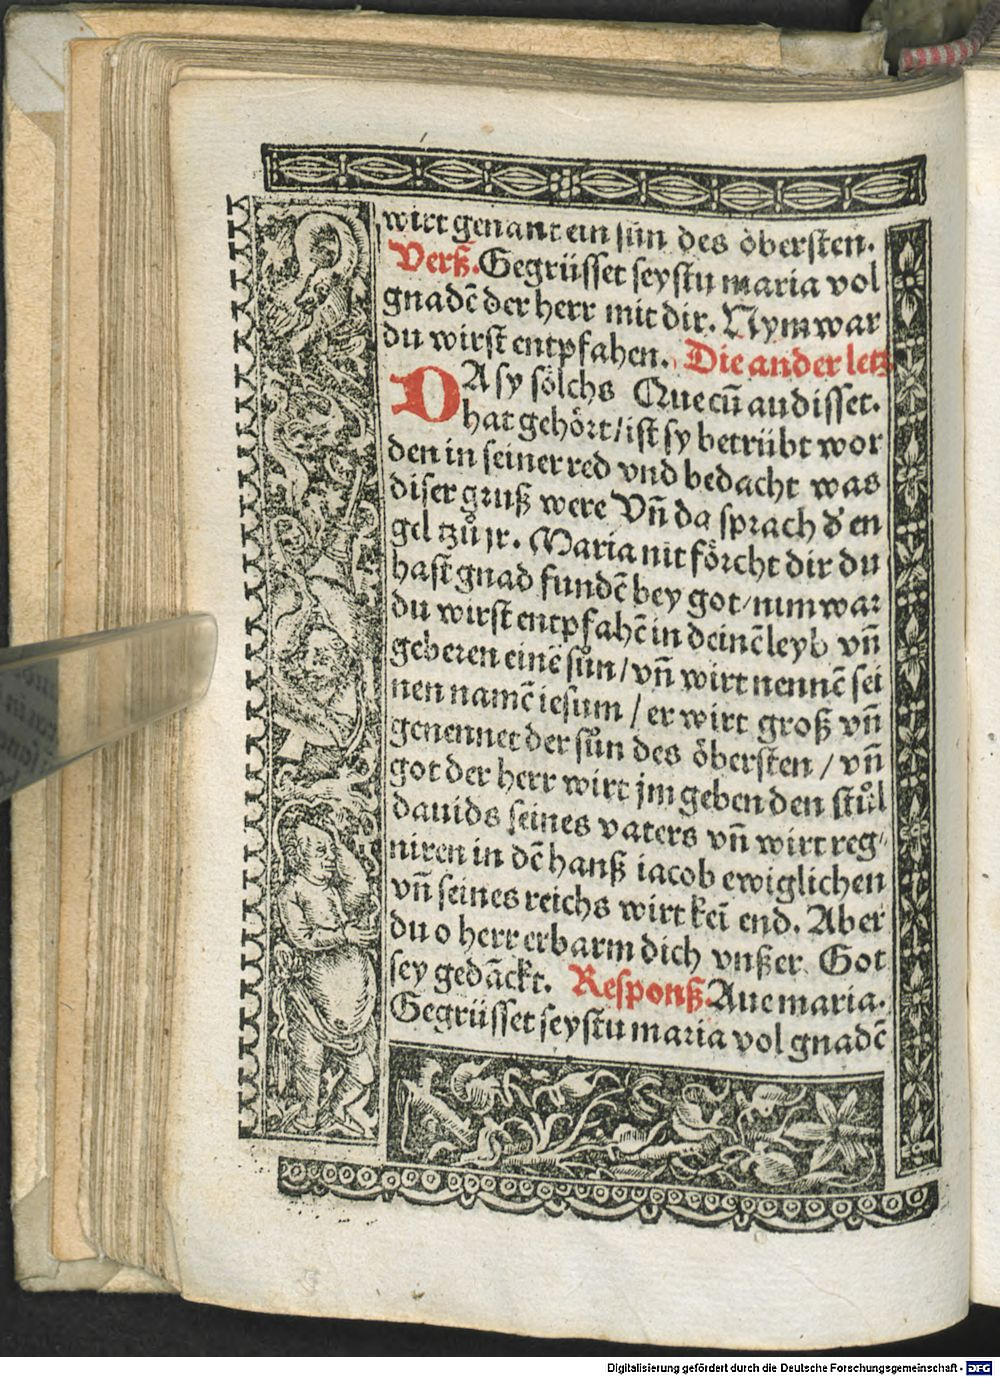 wirt genant ein sun des öbersten.
Verß. Gegrüsset seystu maria vol
gnadē der herr mit dir. Nym war
du wirst entpfahen. Die ander letz
DA sy sölchs Que cū audisset.
hat gehört / ist sy betrübt wor
den in seiner red vnd bedacht was
diser gruß were Vn̄ da sprach d' en
gel tzů jr. Maria nit förcht dir du
hast gnad fundē bey got / nim war
du wirst entpfahē in deinē leyb vn̄
geberen einē sůn / vn̄ wirt nennē sei
nen namē iesum / er wirt groß vn̄
genennet der sůn des öbersten / vn̄
got der herr wirt jm geben den stůl
dauids seines vaters vn̄ wirt reg/
niren in dē hanß iacob ewiglichen
vn̄ seines reichs wirt kei end. Aber
du o herr erbarm dich vnßer. Got
sey gedāckt. Responß. Aue maria.
Gegrüsset seystu maria vol gnadē
Digitalisierung gefördert durch die Deutsche Forschungsgemeinschaft - DFG